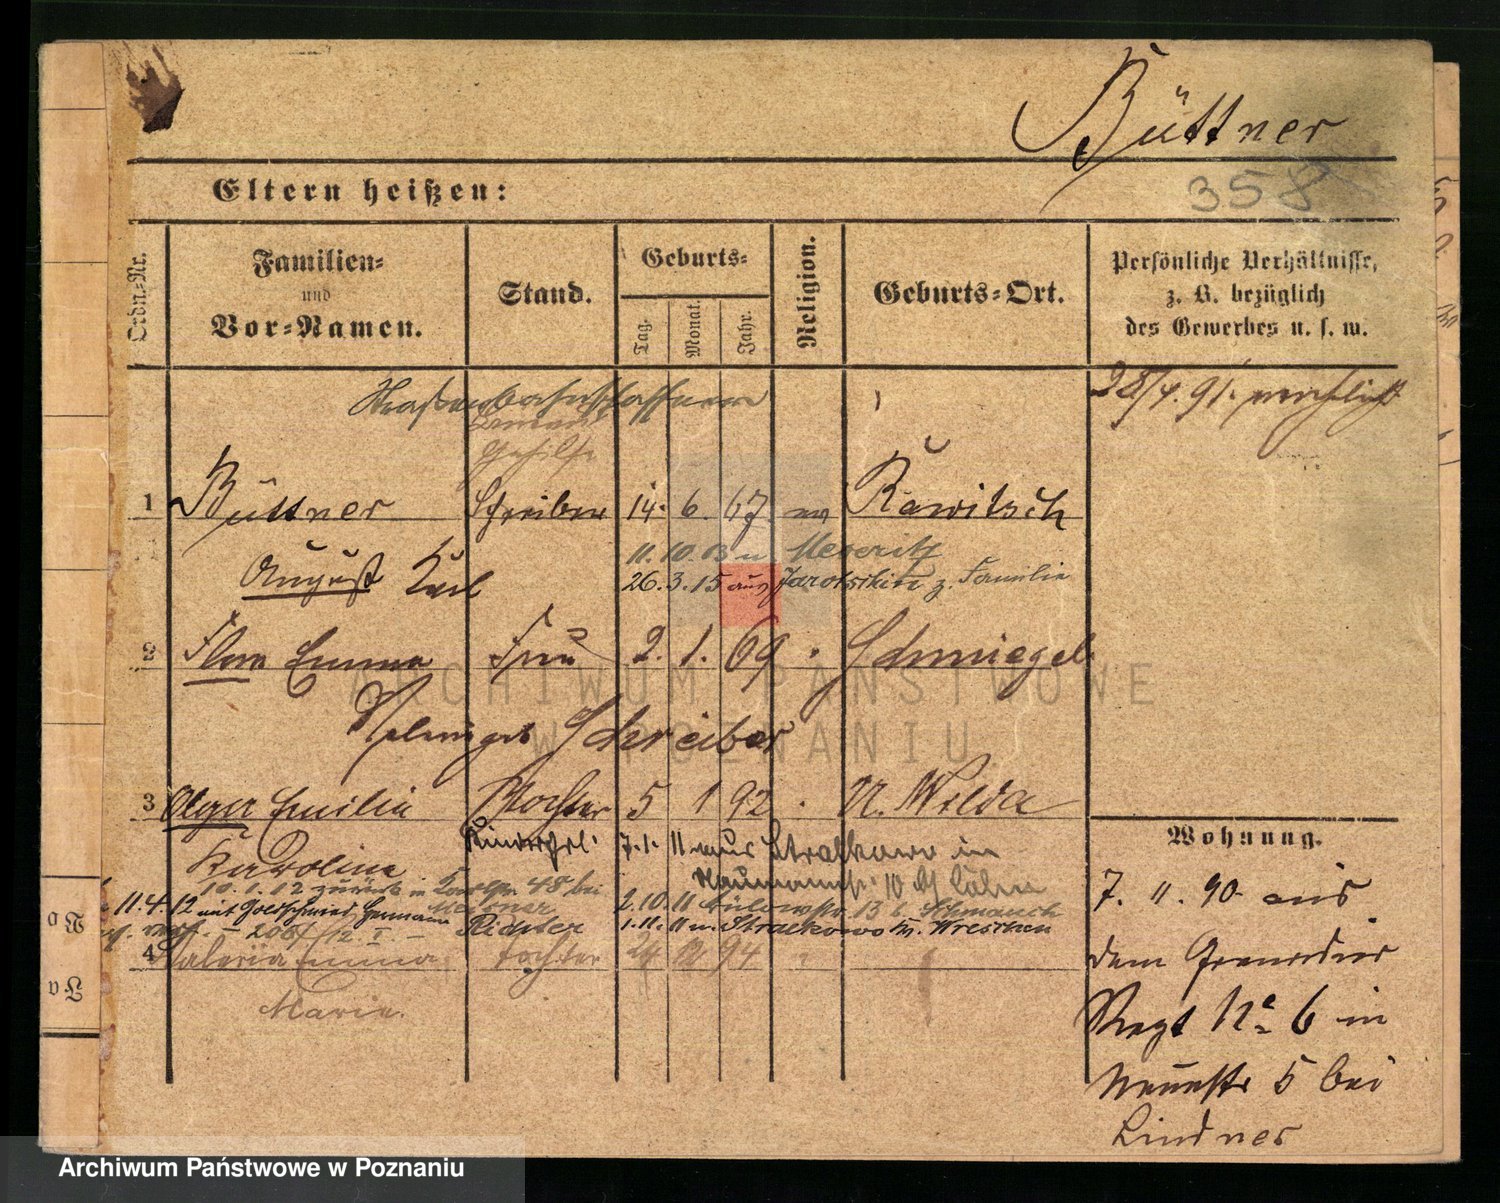 Büttner
Eltern heißen:
358
Ordn.-Nr.
Familien-
und
Vor-Namen.
Stand.
Geburts-
Tag.
Monat.
Jahr.
Religion.
Geburts-Ort.
Persönliche Verhältnisse,
z. B. bezüglich
des Gewerbes u. s. w.
28/4. 91.
Straßenbahnschaffner
Gehilfe
1 Büttner Schreiber 14. 6. 67 ev Rawitsch
11. 10. 03 n Meseritz
August Karl
26. 3. 15 aus Jarotschin z. Familie
2 Flora Emma Frau 2. 1. 69 Schmiegel
geb Schreiber
3 Olga Emilie Tochter 5 1 92 N. Wilda
Karoline
Kinderfrl. 7. 1. 11 aus Stralkowo in
10. 1. 12 zurück in 48 bei
Meisner
11. 4. 12 mit Goldschmied Hermann Richter
2. 10. 11 Bülowstr. 13 b Schmauch
1. 11. 11 n. Stralkowo Kr. Wreschen
4 Valeria Emma Tochter 24 12 94
Marie.
Wohnung.
7. 11. 90 aus
dem Grenadier
Regt No 6 in
Neuestr 5 bei
Lindner
No
ARCHIWUM PAŃSTWOWE
W POZNANIU
Archiwum Państwowe w Poznaniu